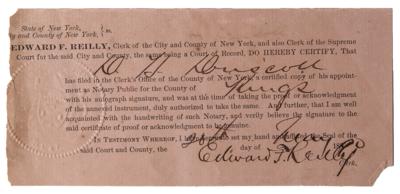 State of New York,
City and County of New York, } ss.
I, EDWARD F. REILLY, Clerk of the City and County of New York, and also Clerk of the Supreme
Court for the said City and County, the same being a Court of Record, DO HEREBY CERTIFY, That
has filed in the Clerk's Office of the County of New York, a certified copy of his appointment
as Notary Public for the County of Kings
with his autograph signature, and was at the time of taking the proof or acknowledgment
of the annexed instrument, duly authorized to take the same. And further, that I am well
acquainted with the handwriting of such Notary, and verily believe the signature to the
said certificate of proof or acknowledgment to be genuine.
IN TESTIMONY WHEREOF, I have hereunto set my hand and affixed the Seal of the
said Court and County, the day of 18
Edward F. Reilly
Clerk.